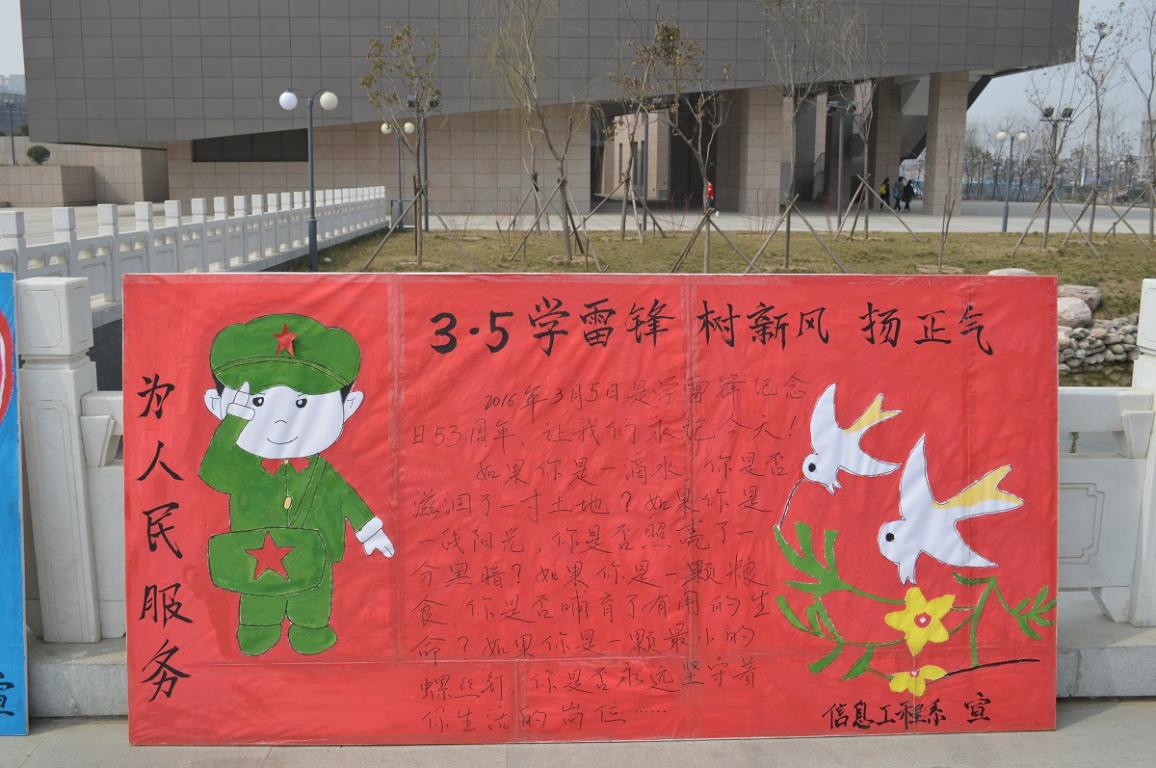 3·5学雷锋 树新风 扬正气
为人民服务
2016年3月5日是学雷锋纪念
日53周年，让我们永记今天！
如果你是一滴水，你是否
滋润了一寸土地？如果你是
一线阳光，你是否照亮了一
分黑暗？如果你是一颗粮
食，你是否哺育了有用的生
命？如果你是一颗最小的
螺丝钉，你是否永远坚守着
你生活的岗位……
信息工程系 宣
宣